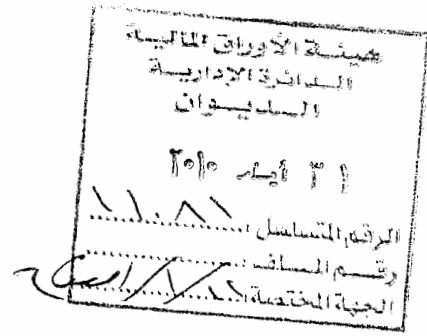 هيئة الأوراق المالية
الدائرة الإدارية
الديوان
٣١ أيار ٢٠١٠
الرقم المتسلسل: ١١٠٨١
رقم الملف:
الجهة المختصة: